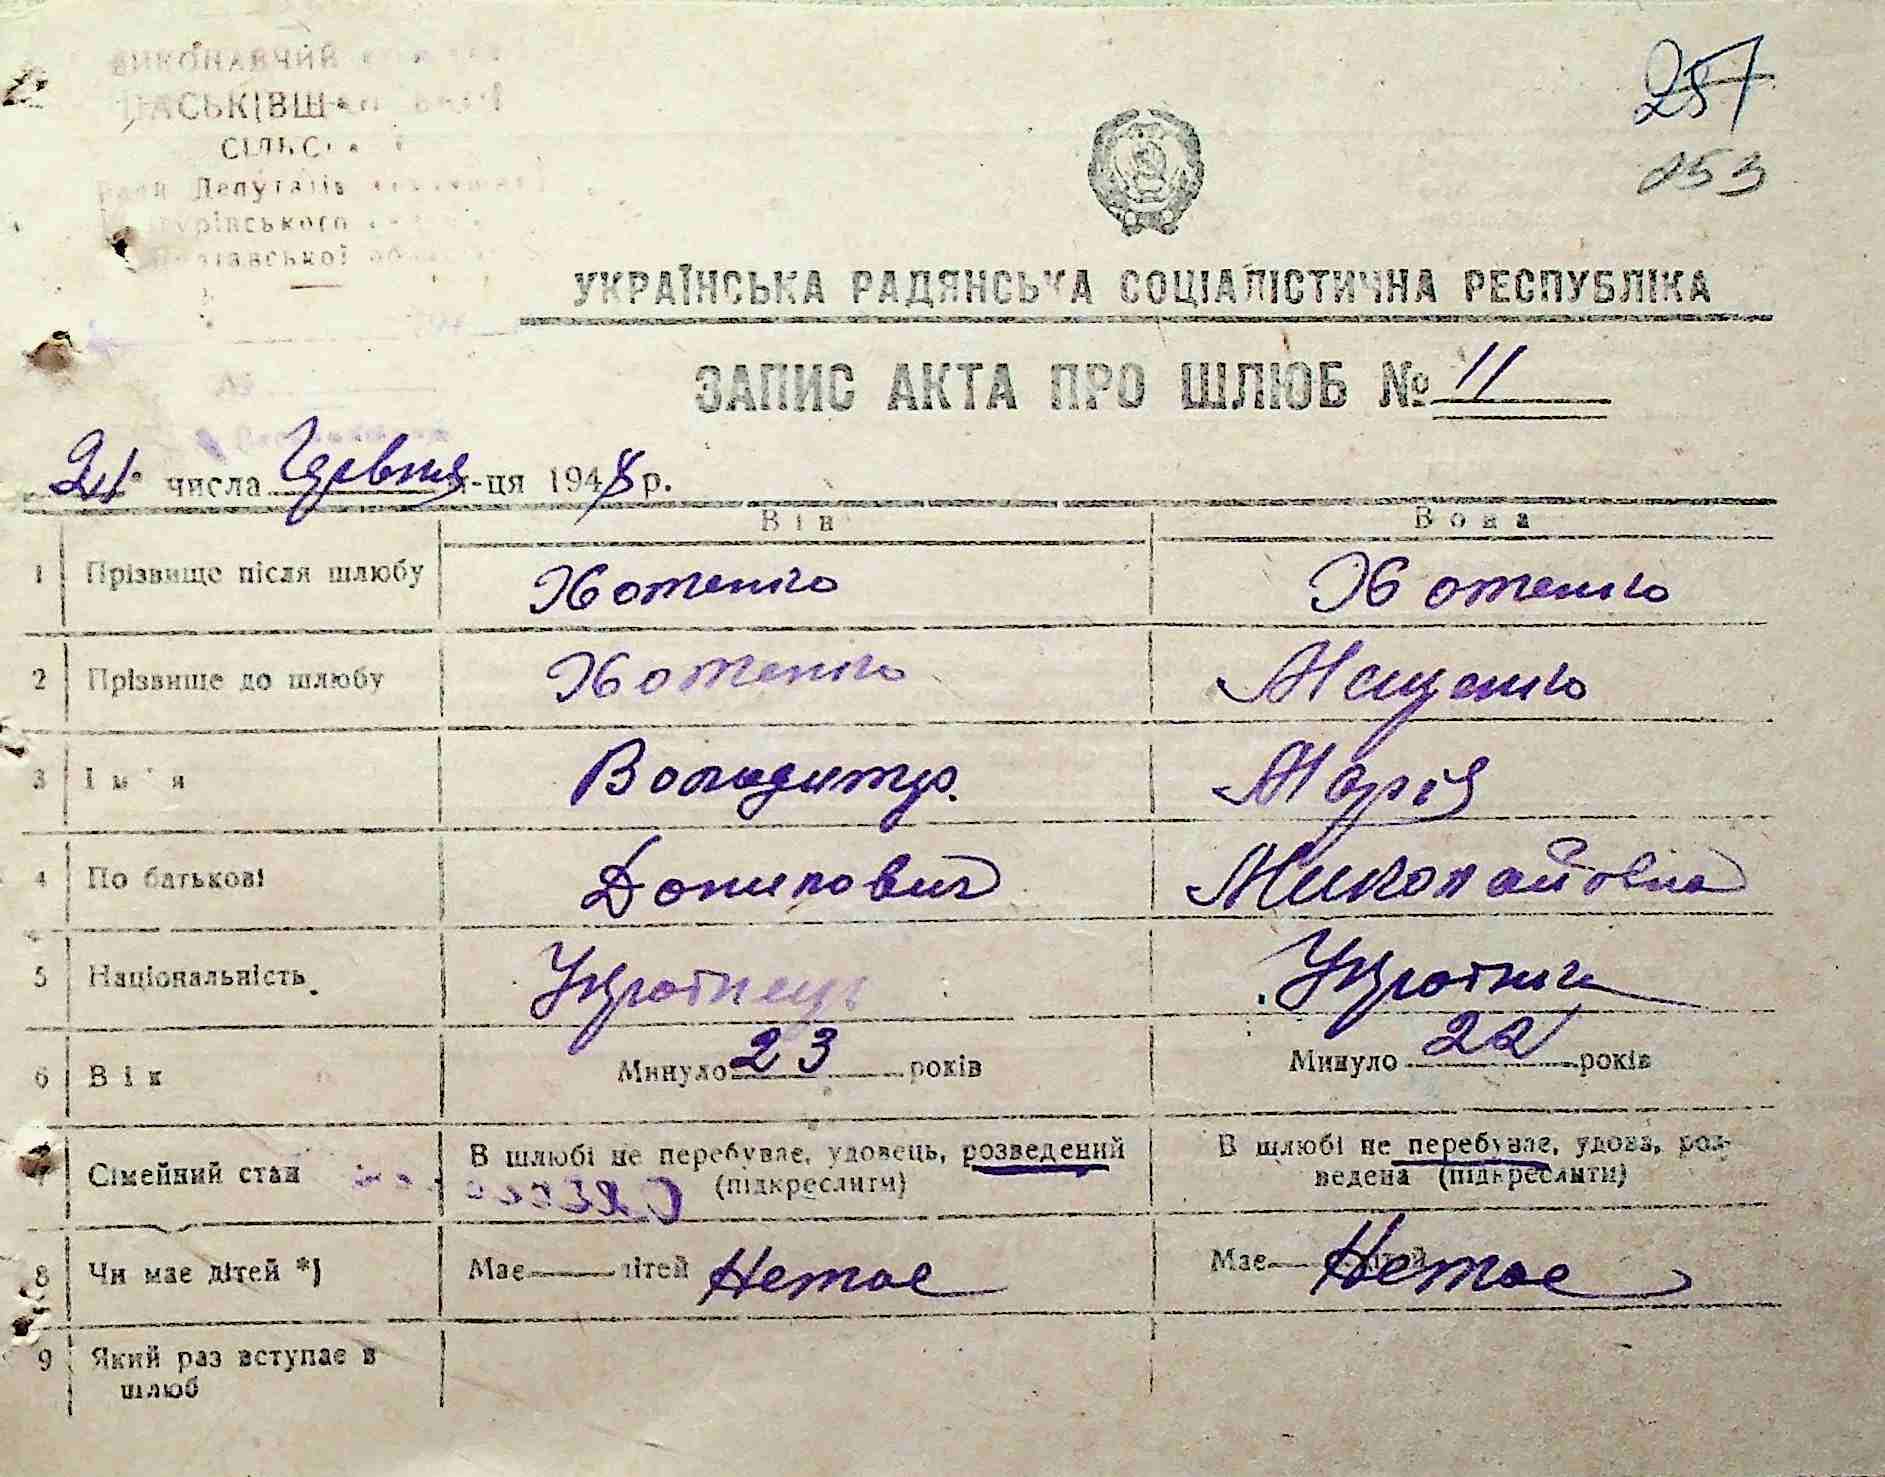 ВИКОНАВЧИЙ
Депутатів
257
253
УКРАЇНСЬКА РАДЯНСЬКА СОЦІАЛІСТИЧНА РЕСПУБЛІКА
ЗАПИС АКТА ПРО ШЛЮБ № 11
числа м-ця 1948 р.
Він Вона
1 Прізвище після шлюбу Хоменко Хоменко
2 Прізвище до шлюбу Хоменко
3 Ім'я Володимир. Марія
4 По батькові Данилович Миколаївна
5 Національність Українець Українка
6 Вік Минуло 23 років Минуло 22 років
7 Сімейний стан В шлюбі не перебуває, удовець, розведений (підкреслити) В шлюбі не перебуває, удова, роз-
ведена (підкреслити)
8 Чи має дітей *) Має дітей Немає Має дітей Немає
9 Який раз вступає в
шлюб